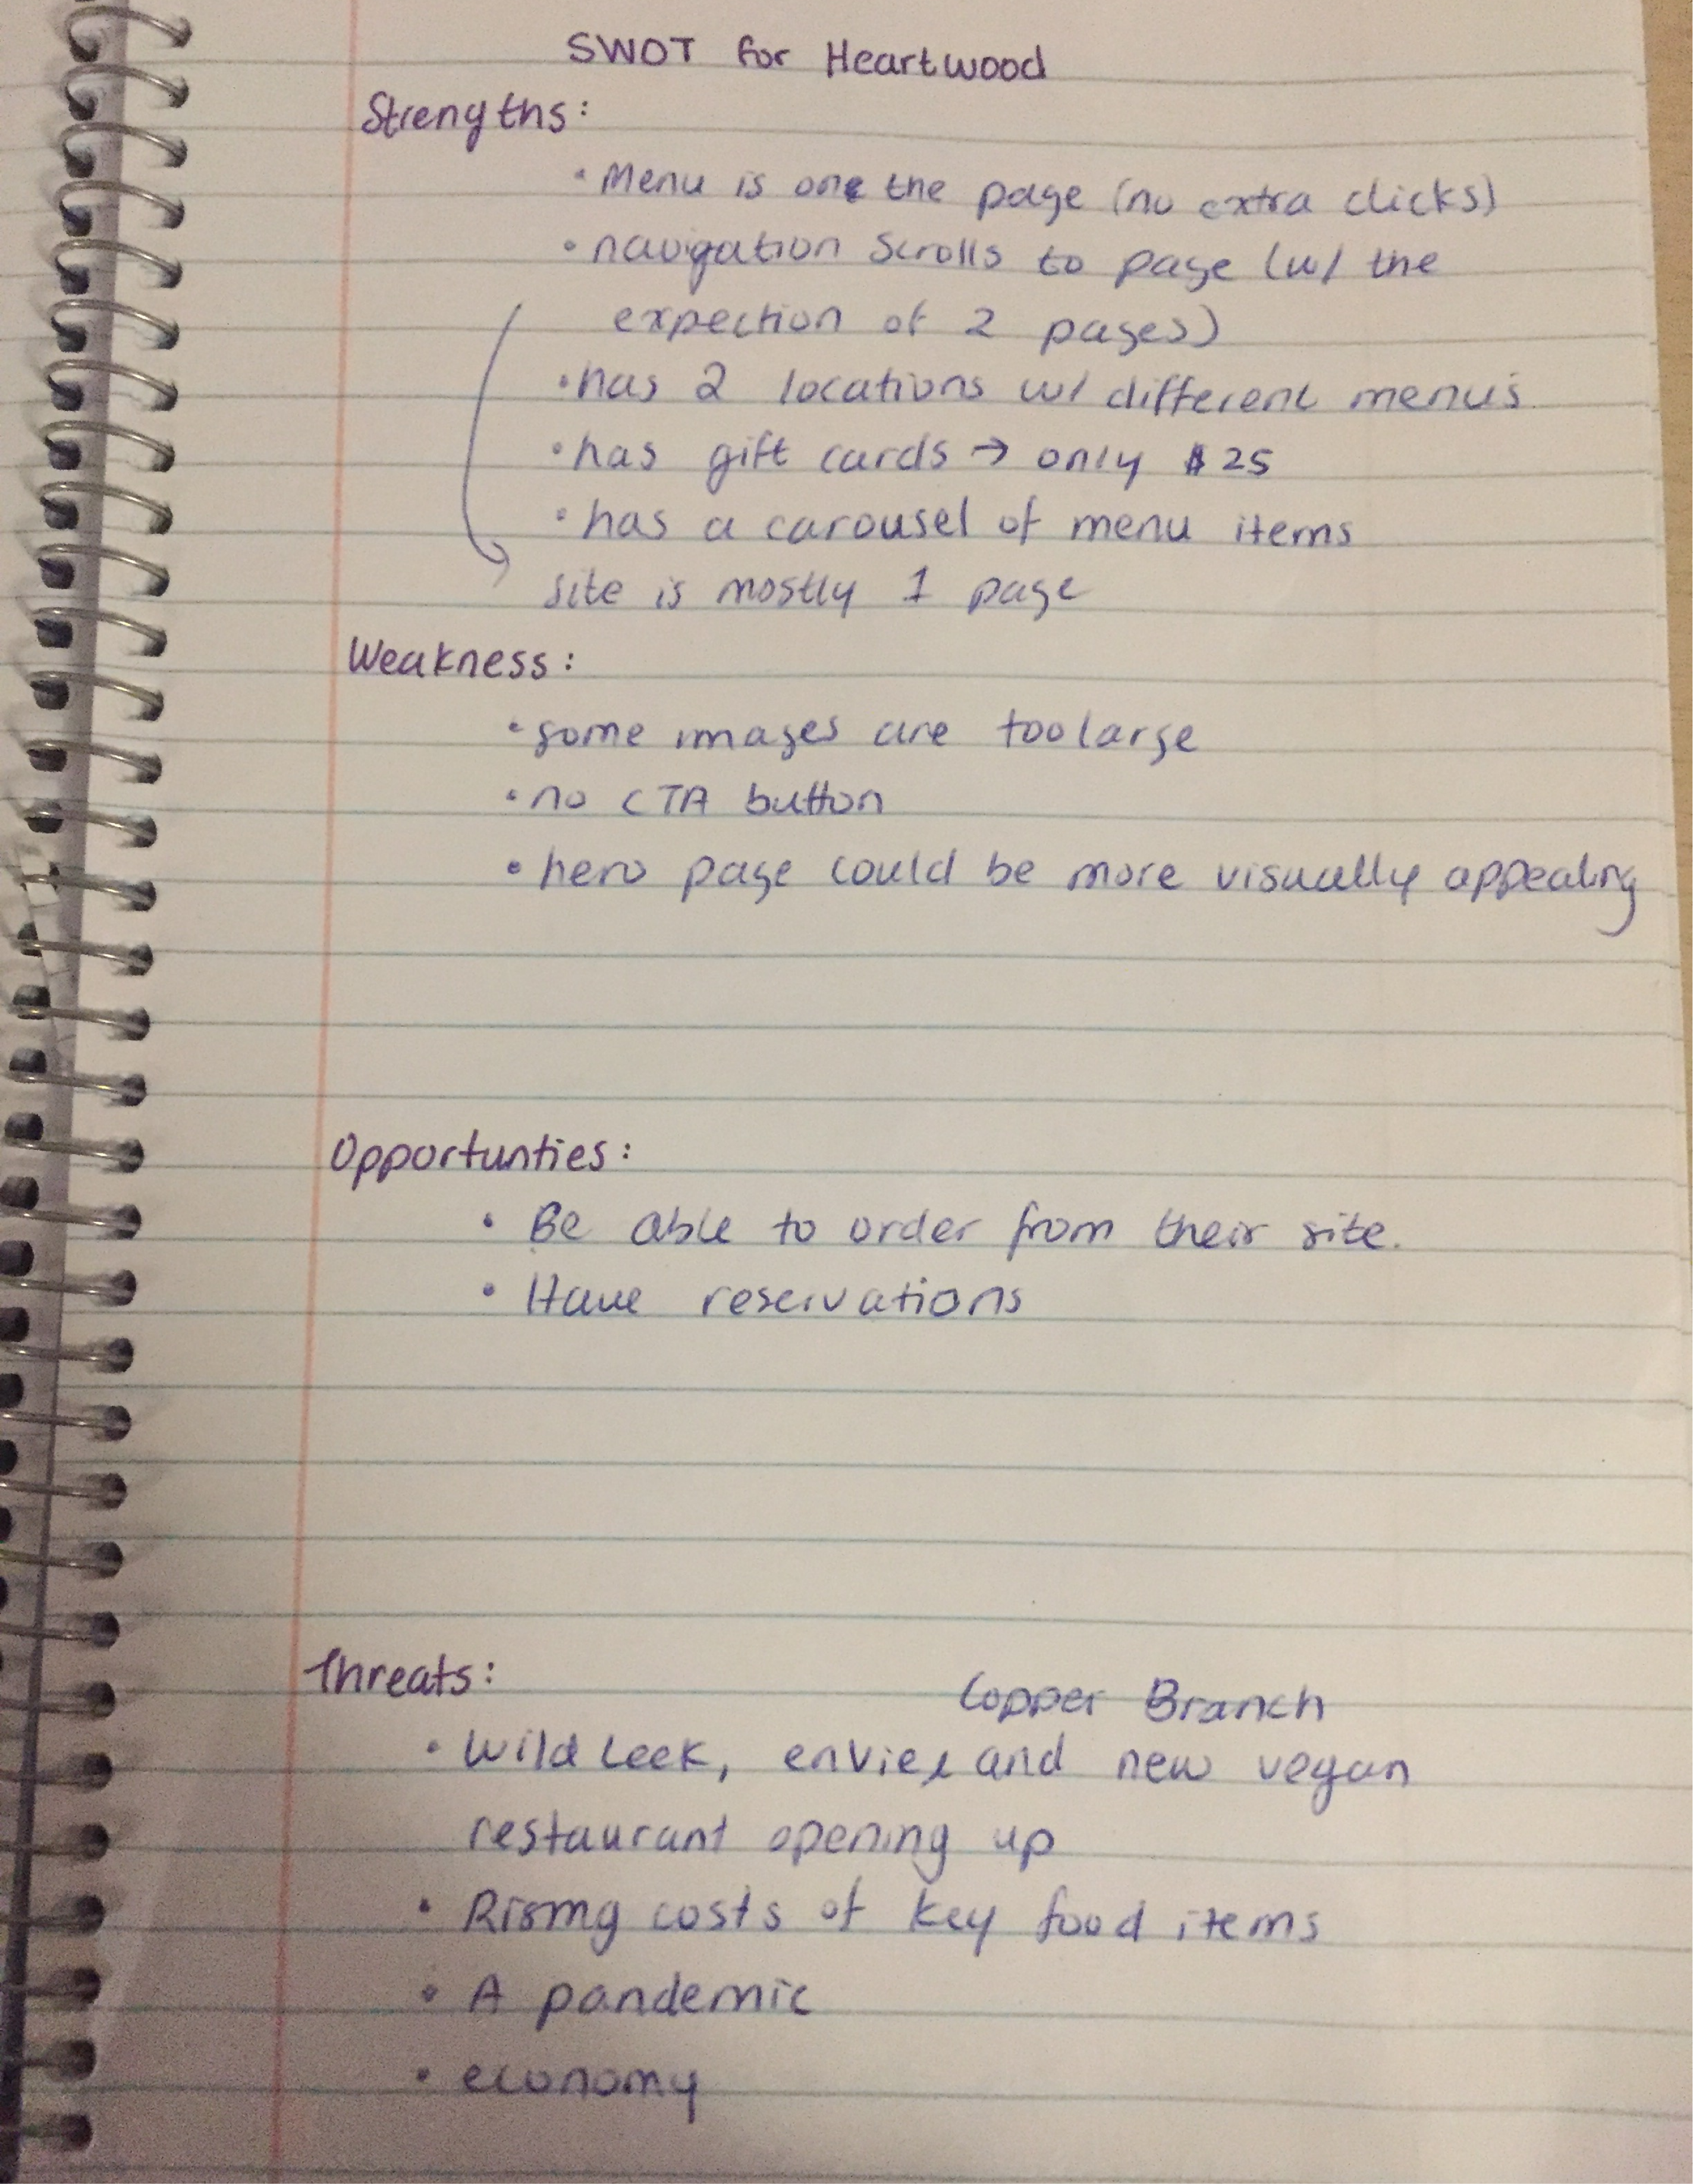 SWOT for Heartwood
Strengths:
• Menu is one the page (no extra clicks)
• navigation scrolls to page (w/ the
expection of 2 pages)
• has 2 locations w/ different menus
• has gift cards → only $25
• has a carousel of menu items
site is mostly 1 page
Weakness:
• some images are too large
• no CTA button
• hero page could be more visually appealing
Opportunties:
• Be able to order from their site.
• Have reservations
Threats:
Copper Branch
• Wild Leek, envie, and new vegan
restaurant opening up
• Rising costs of key food items
• A pandemic
• economy